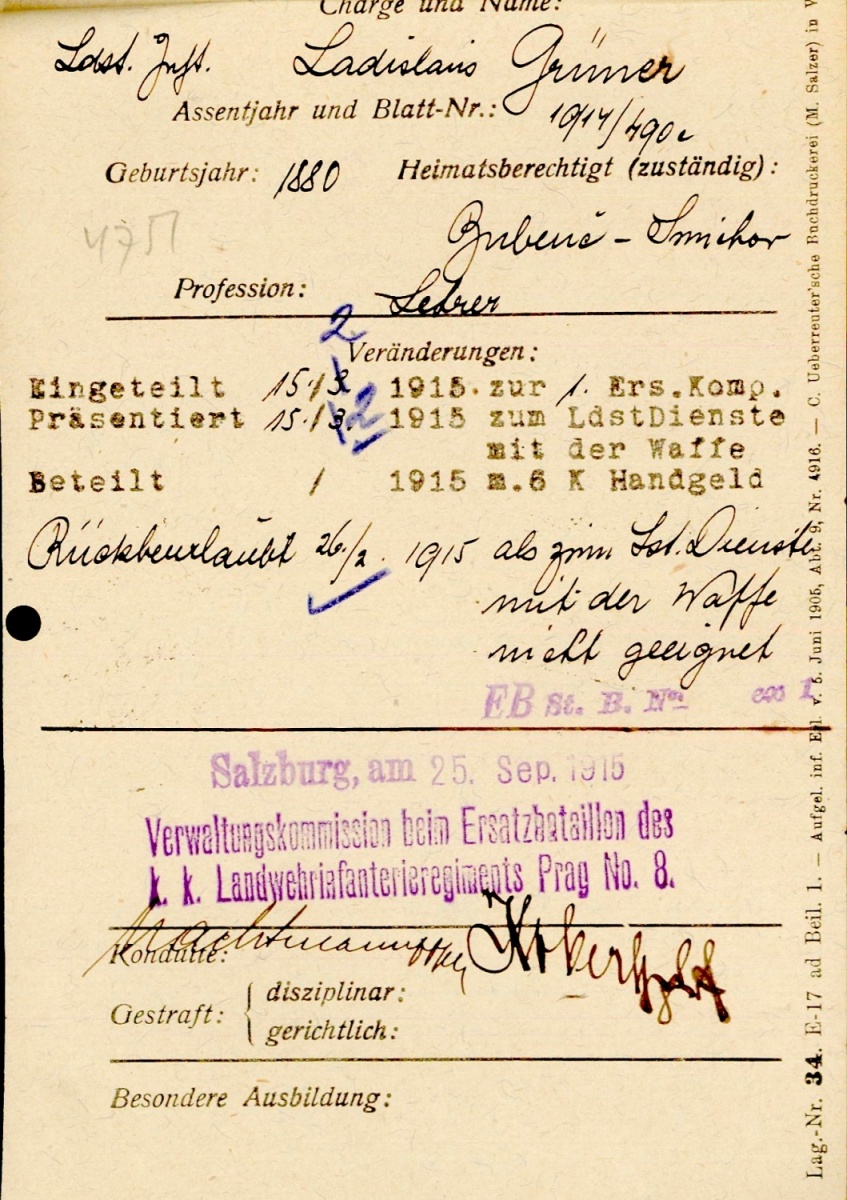 Charge und Name:
Ldst. Inft. Ladislaus Grüner
Assentjahr und Blatt-Nr.: 1914/490
Geburtsjahr: 1880 Heimatsberechtigt (zuständig):
Bubenč - Smichov
Profession: Lehrer
2
Veränderungen:
Eingeteilt 15./3. 1915. zur 1. Ers.Komp.
Präsentiert 15./3. 2 1915 zum LdstDienste
mit der Waffe
Beteilt / 1915 m.6 K Handgeld
Rückbeurlaubt 26./2. 1915 als zum Lst. Dienste
mit der Waffe
nicht geeignet
EB St. B. No
Salzburg, am 25. Sep. 1915
Verwaltungskommission beim Ersatzbataillon des
k. k. Landwehrinfanterieregiments Prag No. 8.
Konduite:
Gestraft: disziplinar:
gerichtlich:
Besondere Ausbildung:
Lag.-Nr. 34. E-17 ad Beil. 1. — Aufgel. inf. Erl. v. 5. Juni 1905, Abt. 9, Nr. 4916. — C. Ueberreuter'sche Buchdruckerei (M. Salzer) in